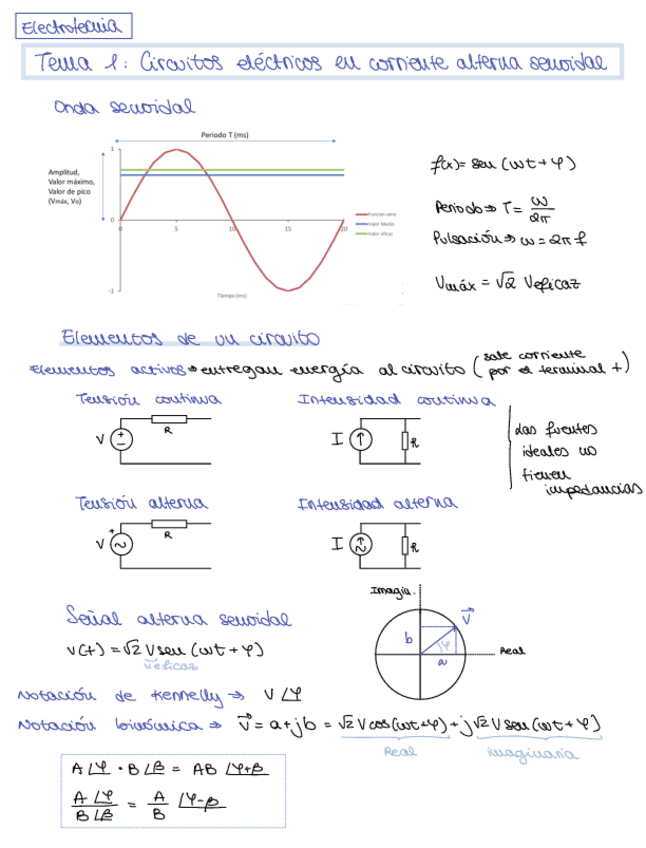 Electrotecnia
Tema 1: Circuitos eléctricos en corriente alterna senoidal
Onda senoidal
Periodo T (ms)
Amplitud,
Valor máximo,
Valor de pico
(Vmáx, Vo)
1
0
-1
5
10
15
20
Funcion seno
Valor Medio
Valor eficaz
Tiempo (ms)
f(x) = sen (ωt + φ)
Periodo → T = ω/2π
Pulsación → ω = 2πf
Vmáx = √2 Veficaz
Elementos de un circuito
Elementos activos → entregan energía al circuito (sale corriente por el terminal +)
Tensión continua
V
+
−
R
Intensidad continua
I
R
Las fuentes
ideales no
tienen
impedancias
Tensión alterna
V
+
R
Intensidad alterna
I
R
Señal alterna senoidal
v(t) = √2 V sen (ωt + φ)
Veficaz
Imagin.
Real
V⃗
b
a
φ
Notación de Kennelly → V∠φ
Notación binómica → v⃗ = a + jb = √2 V cos(ωt+φ) + j√2 V sen(ωt + φ)
Real
imaginaria
A∠φ · B∠β = AB ∠φ+β
A∠φ / B∠β = A/B ∠φ-β